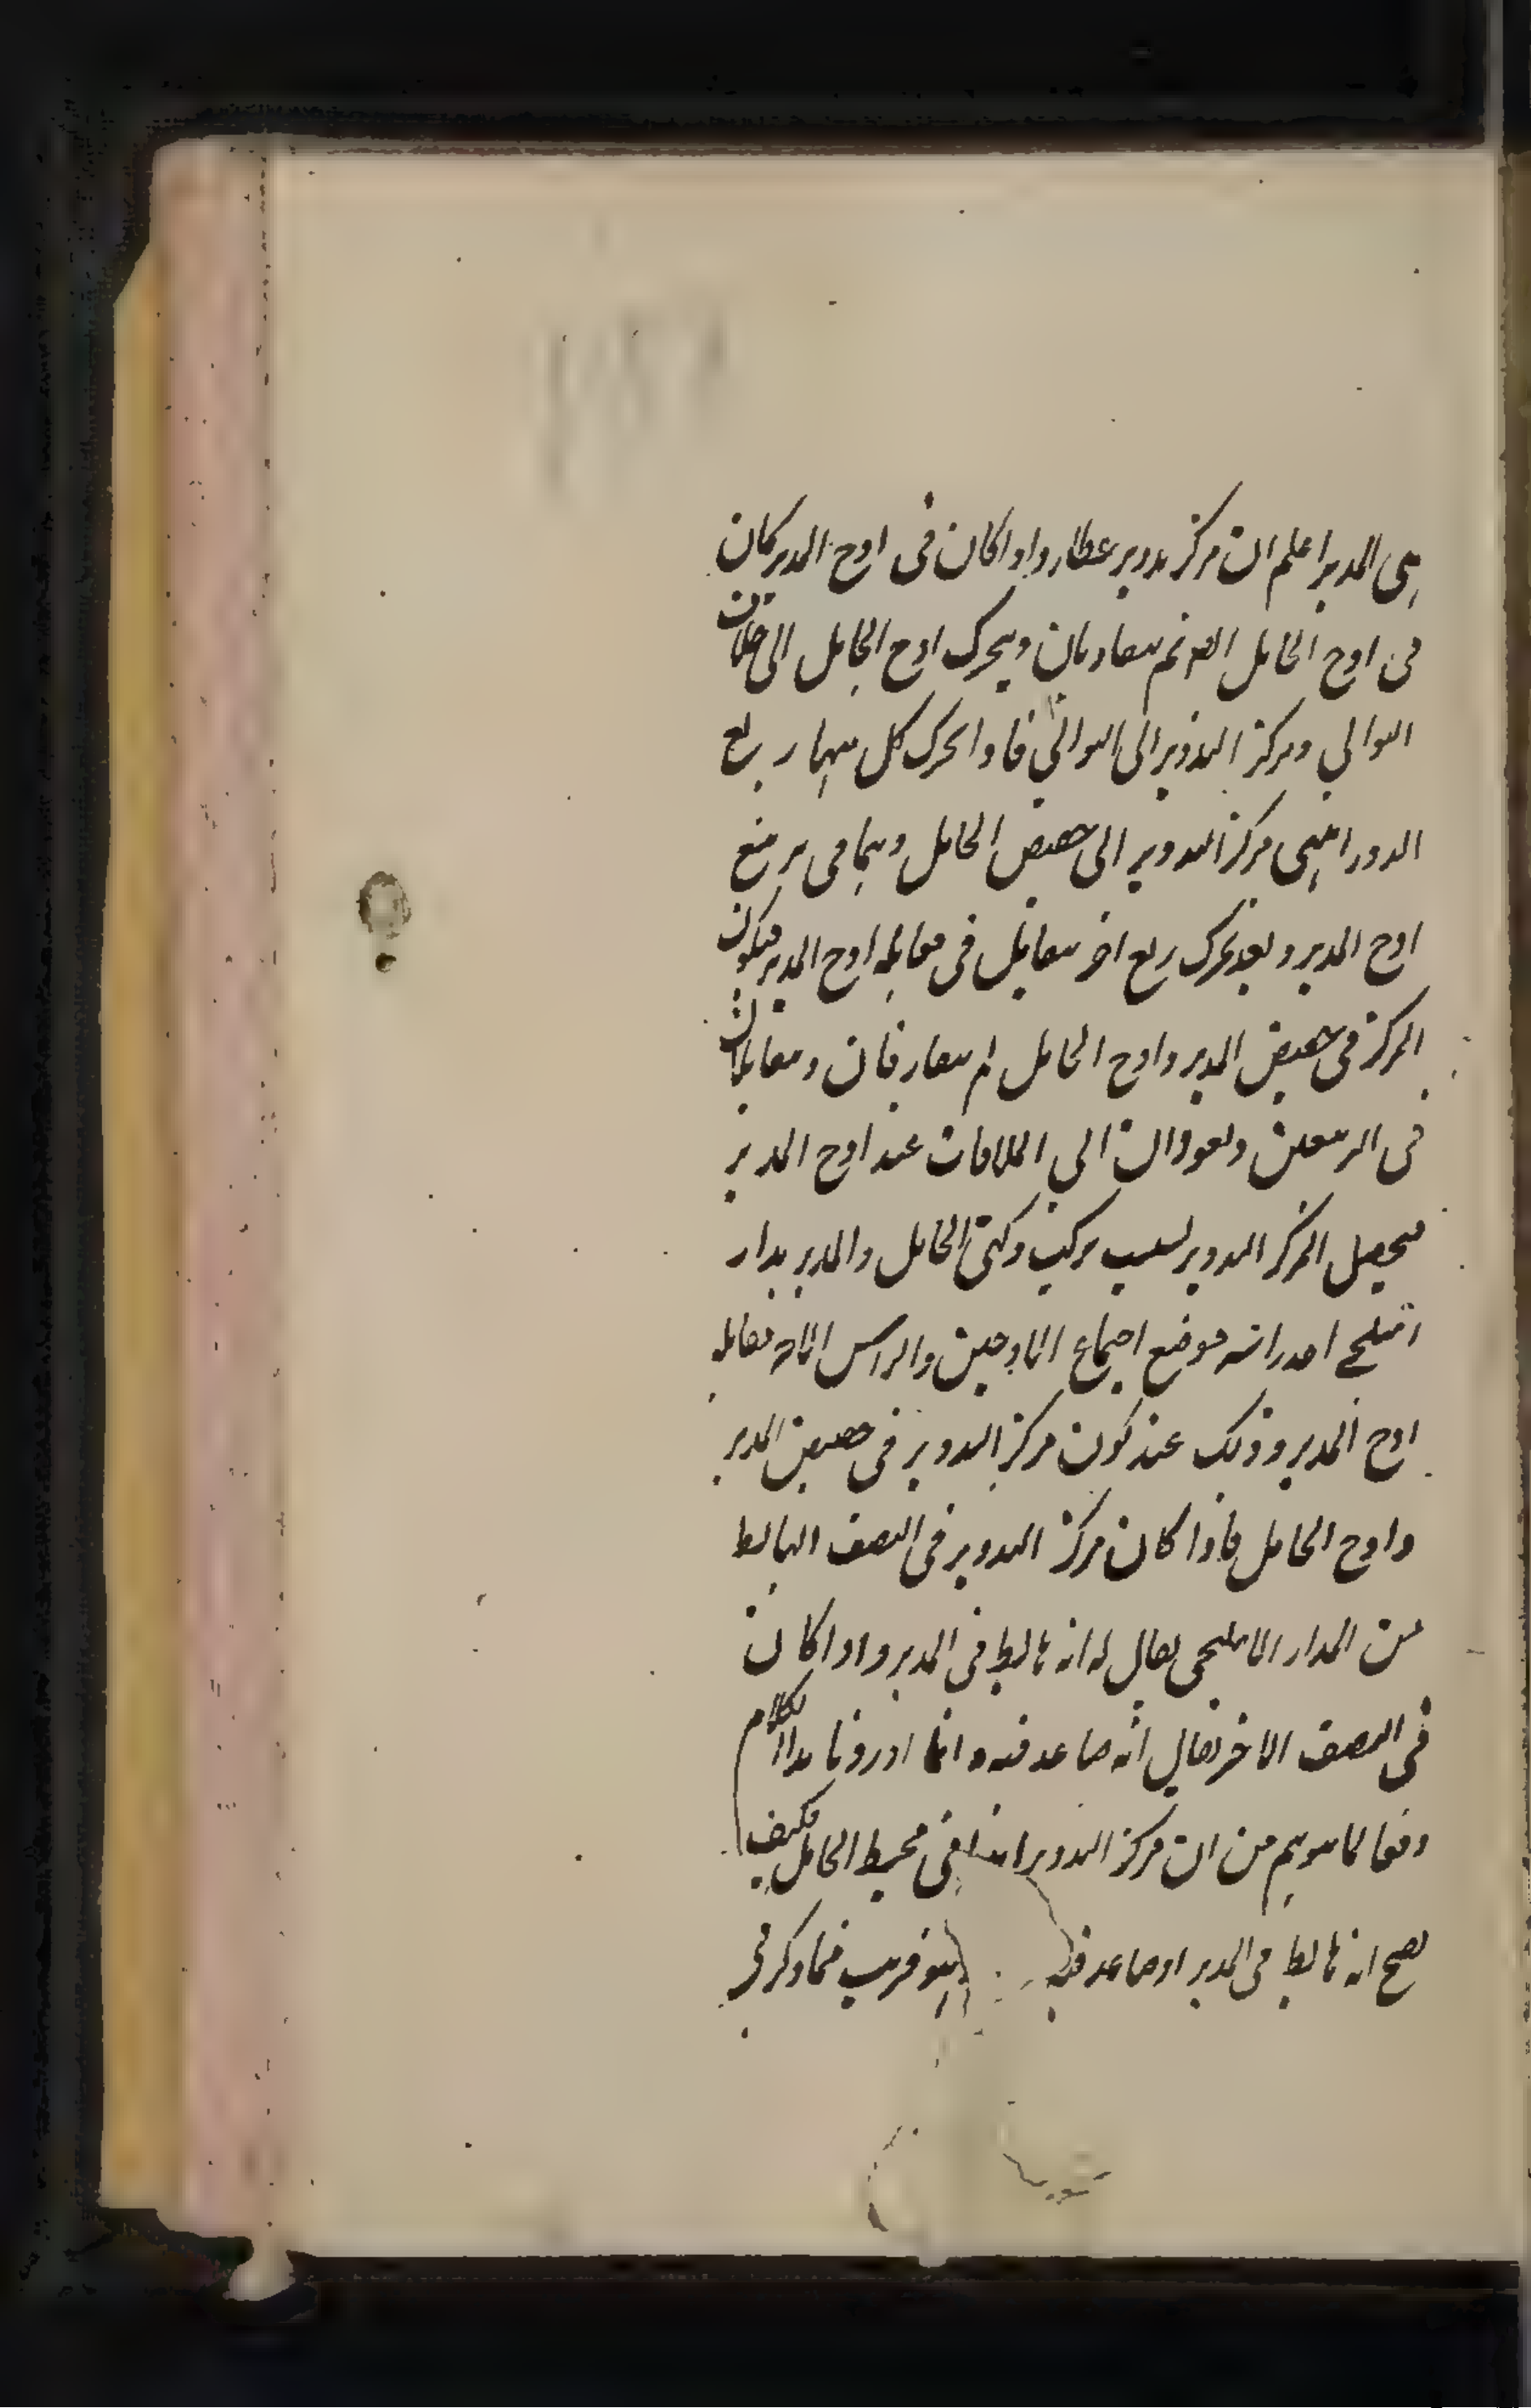 في المدير اعلم ان مركز تدوير عطارد اذا كان في اوج المدير كان
في اوج الحامل ايضا ثم يتفارقان ويتحرك اوج الحامل الى خلاف
التوالي ومركز التدوير الى التوالي فاذا تحرك كل منهما ربع
الدور انتهى مركز التدوير الى حضيض الحامل وهما في تربيع
اوج المدير وبعد تحرك ربع اخر يتقابل في مقابلة اوج المدير فيكون
المركز في حضيض المدير واوج الحامل ثم يتفارقان ويتقابلان
في الربعين ويعودان الى الملاقات عند اوج المدير
فيحصل لمركز التدوير بسبب تركيب حركتي الحامل والمدير مدار
اهليلجي احد راسيه موضع اجتماع الاوجين والراس الاخر مقابل
اوج المدير وذلك عند كون مركز التدوير في حضيض المدير
واوج الحامل فاذا كان مركز التدوير في النصف الهابط
من المدار الاهليلجي يقال له انه هابط في المدير واذا كان
في النصف الاخر يقال انه صاعد فيه وانما اوردنا هذا الكلام
دفعا لما يتوهم من ان مركز التدوير ابدا في محيط الحامل فكيف
يصح انه هابط في المدير او صاعد فيه فما ذكر في